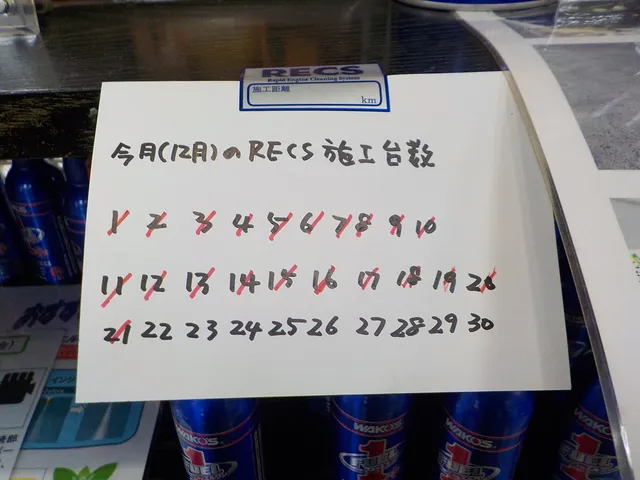 RECS
Rapid Engine Cleaning System
施工距離
km
今月(12月)のRECS施工台数
1 2 3 4 5 6 7 8 9 10
11 12 13 14 15 16 17 18 19 20
21 22 23 24 25 26 27 28 29 30
おすす
インシ
WAKO'S WAKO'S WAKO'S WAKO'S
FUEL FUEL FUEL